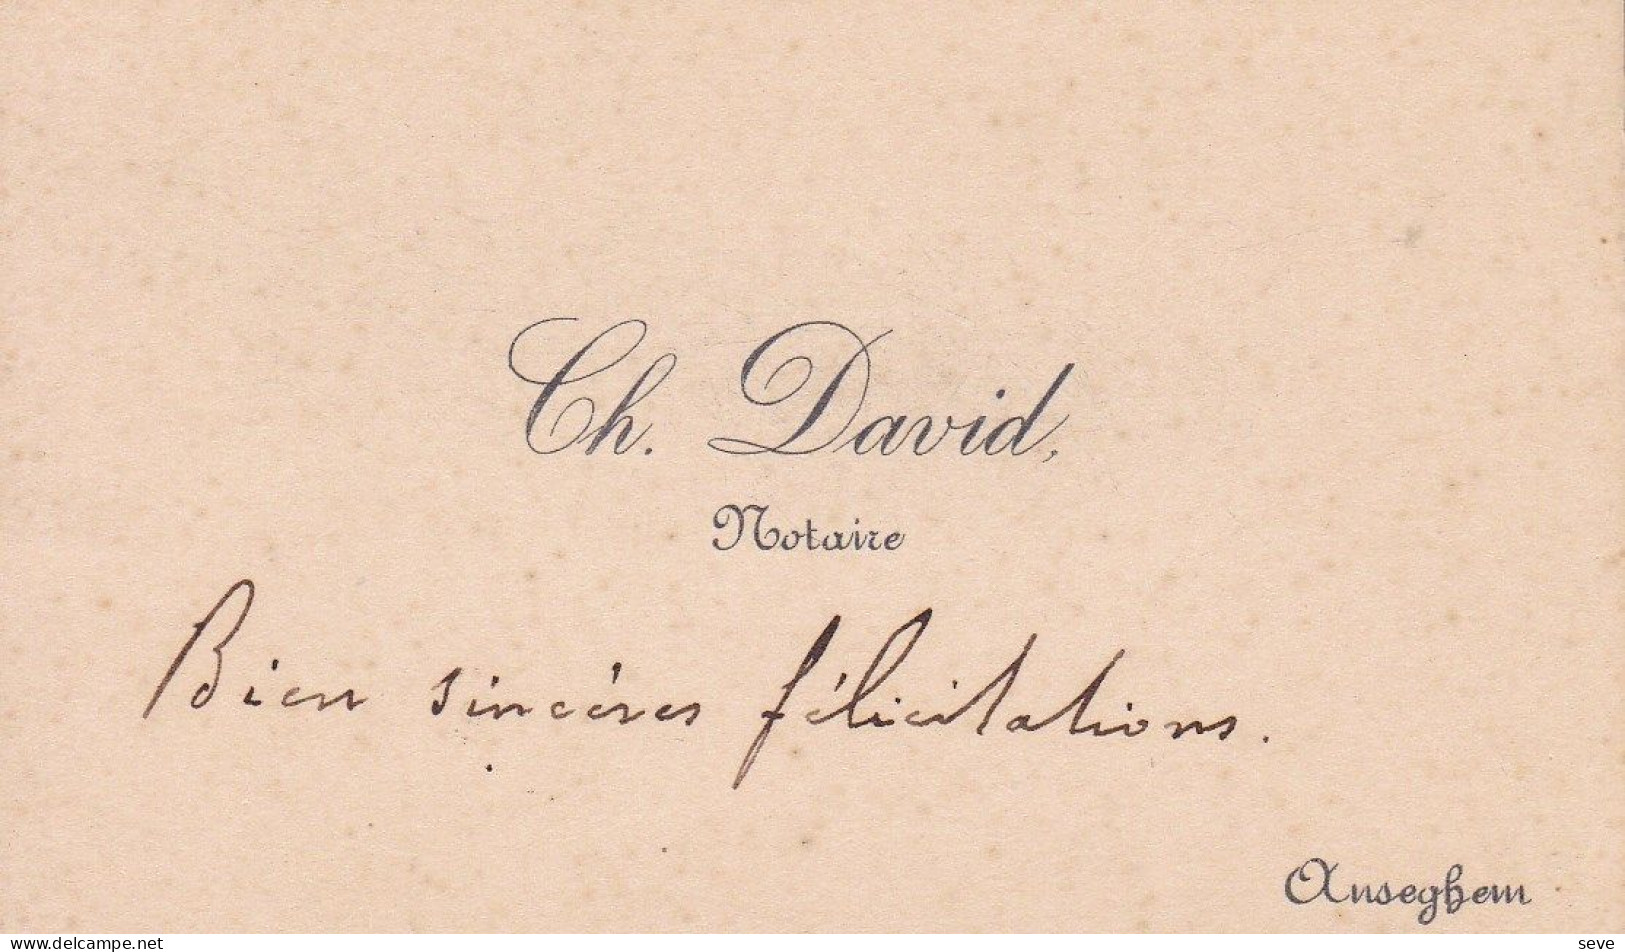 Ch. David,
Notaire
Bien sincères félicitations.
Anseghem
www.delcampe.net
seve